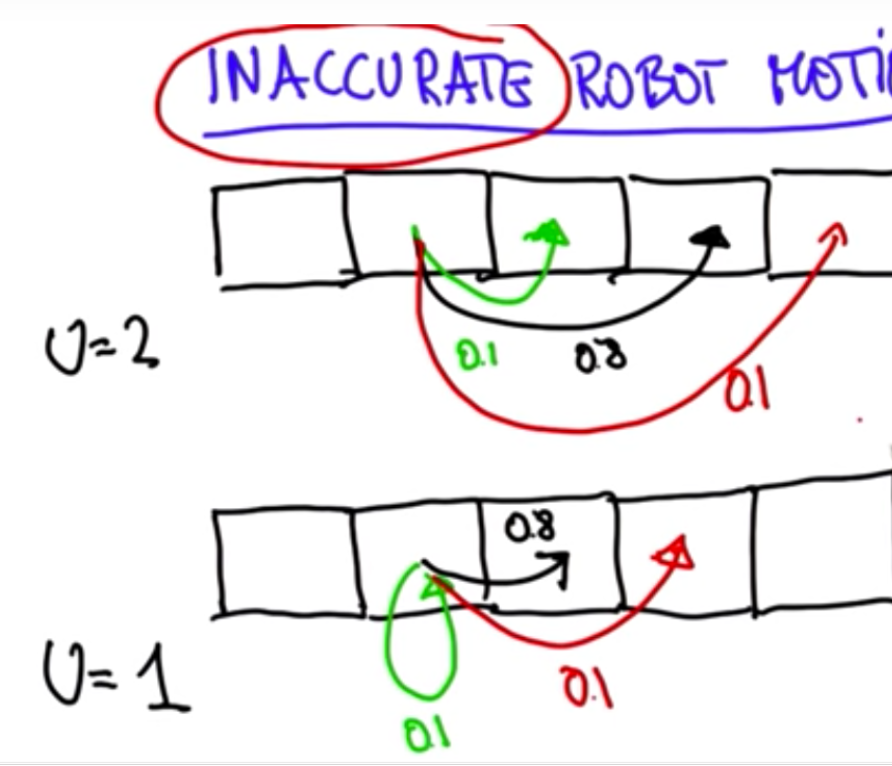 INACCURATE ROBOT MOTI
U=2
0.1 0.8
0.1
0.8
U=1
0.1
0.1